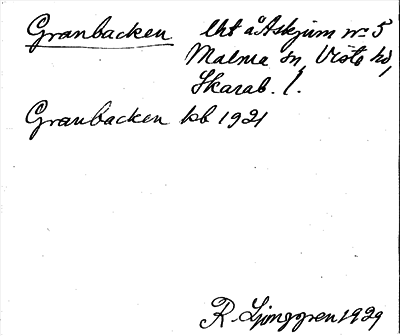 Granbacken lht å Askjum nr 5
Malma sn, Viste hd,
Skarab. l.
Granbacken kb 1921
R. Ljunggren 1929